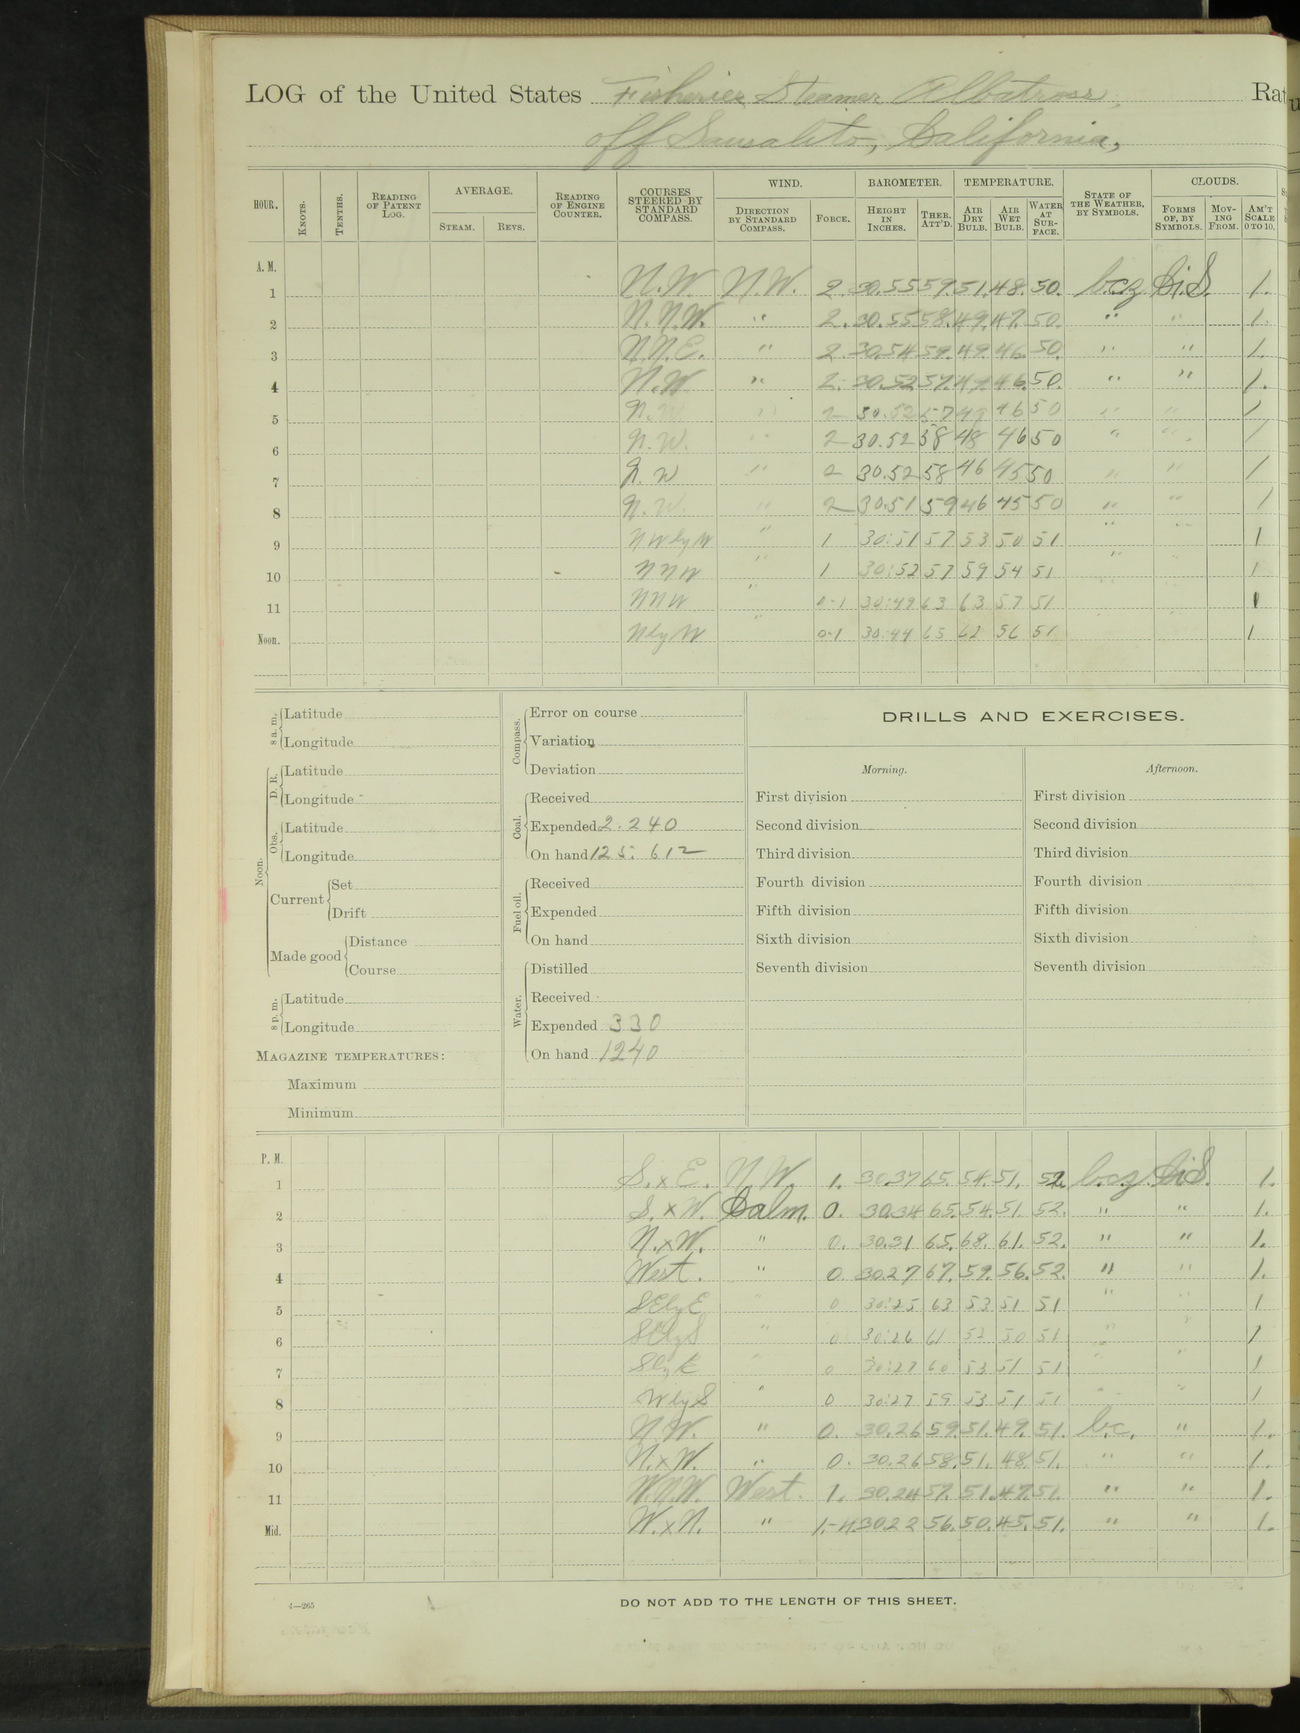 LOG of the United States Fisheries Steamer Albatross, Rat
off Sausalito, California,
HOUR. KNOTS. TENTHS. READING OF PATENT LOG. AVERAGE. STEAM. REVS. READING OF ENGINE COUNTER. COURSES STEERED BY STANDARD COMPASS. WIND. DIRECTION BY STANDARD COMPASS. FORCE. BAROMETER. HEIGHT IN INCHES. THER. ATT'D. TEMPERATURE. AIR DRY BULB. AIR WET BULB. WATER AT SURFACE. STATE OF THE WEATHER, BY SYMBOLS. CLOUDS. FORMS OF, BY SYMBOLS. MOVING FROM. AM'T SCALE 0 TO 10.
A. M.
1 N.W. N.W. 2. 30.55 59. 51. 48. 50. b.c.z. Ci.S. 1.
2 N.N.W. " 2. 30.55 58. 49. 47. 50. " " 1.
3 N.N.E. " 2. 30.54 59. 49. 46. 50. " " 1.
4 N.W. " 2. 30.52 57. 47. 46. 50. " " 1.
5 N.W " 2 30.52 57 48 46 50 " " 1
6 N.W. " 2 30.52 58 48 46 50 " " 1
7 N.W " 2 30.52 58 46 45 50 " " 1
8 N.W. " 2 30.51 59 46 45 50 " " 1
9 NWbyW " 1 30:51 57 53 50 51 " " 1
10 NNW " 1 30:52 57 59 54 51 " 1
11 NNW " 0-1 30:49 63 63 57 51 1
Noon. NbyW " 0-1 30:44 65 62 56 51 1
8 a. m. Latitude
Longitude
Noon. D. R. Latitude
Longitude
Obs. Latitude
Longitude
Current Set
Drift
Made good Distance
Course
8 p. m. Latitude
Longitude
MAGAZINE TEMPERATURES:
Maximum
Minimum
Compass. Error on course
Variation
Deviation
Coal. Received
Expended 2.240
On hand 125. 612
Fuel oil. Received
Expended
On hand
Water. Distilled
Received
Expended 330
On hand 1240
DRILLS AND EXERCISES.
Morning. Afternoon.
First division First division
Second division Second division
Third division Third division
Fourth division Fourth division
Fifth division Fifth division
Sixth division Sixth division
Seventh division Seventh division
P. M.
1 S.xE. N.W. 1. 30.37 65. 54. 51. 52. b.c.z. Ci.S. 1.
2 S.xW. Calm. 0. 30.34 65. 54. 51. 52. " " 1.
3 N.xW. " 0. 30.31 65. 68. 61. 52. " " 1.
4 West. " 0. 30.27 67. 59. 56. 52. " " 1.
5 SEbyE " 0 30:25 63 53 51 51 " " 1
6 SEbyS " 0 30:26 61 52 50 51 " " 1
7 SbyE " 0 30:27 60 53 51 51 " " 1
8 WbyS " 0 30:27 59 53 51 51 " " 1
9 N.W. " 0. 30.26 59. 51. 49. 51. b.c. " 1.
10 N.xW. " 0. 30.26 58. 51. 48. 51. " " 1.
11 W.N.W. West. 1. 30.24 57. 51. 47. 51. " " 1.
Mid. W.xN. " 1.-4. 30.22 56. 50. 45. 51. " " 1.
4—265 DO NOT ADD TO THE LENGTH OF THIS SHEET.